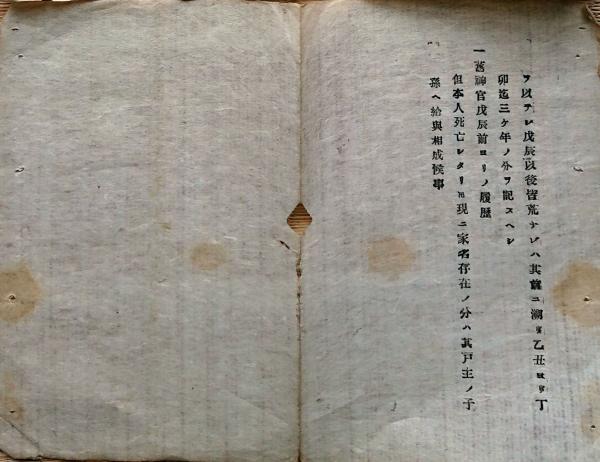 ヲ以テシ戊辰以後皆荒ナレハ其前ニ溯リ乙丑ヨリ丁
卯迄三ケ年ノ分ヲ記スヘシ
一舊神官戊辰前ヨリノ履歴
但本人死亡シタリ𪜈現ニ家名存在ノ分ハ其戸主ノ子
孫ヘ給與相成候事